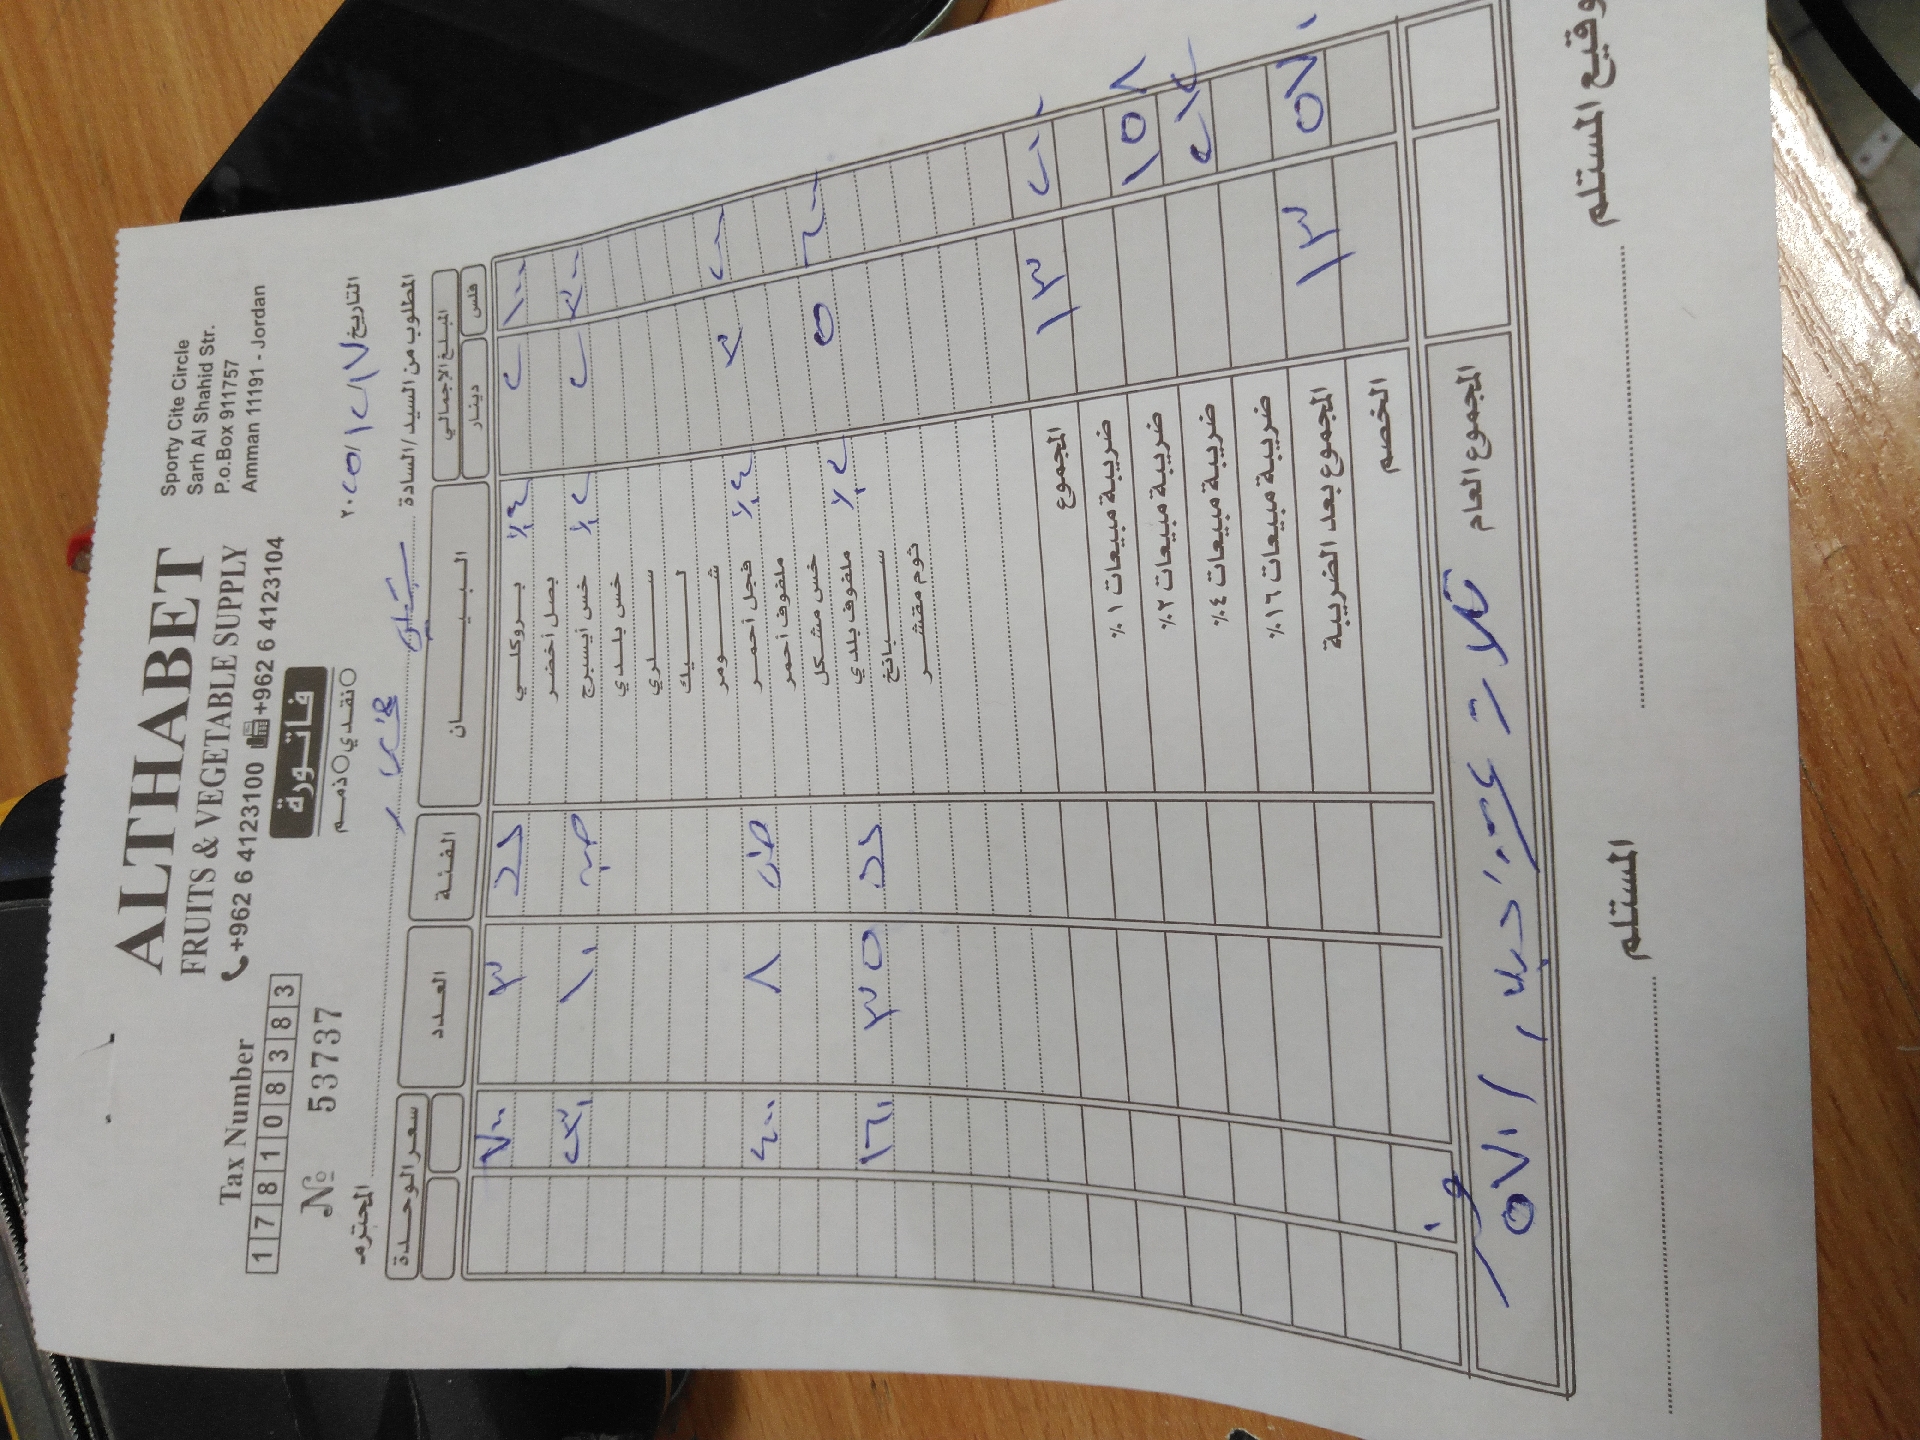 ALTHABET
FRUITS & VEGETABLE SUPPLY
+962 6 4123100 +962 6 4123104
Sporty Cite Circle
Sarh Al Shahid Str.
P.o.Box 911757
Amman 11191 - Jordan
Tax Number
1 7 8 1 0 8 3 8 3
№ 53737
فاتورة
نقدي ذمم
التاريخ ١٧/١٢/٢٠٢٥
المطلوب من السيد / السادة المحترم
المبلغ الإجمالي البيان الفئة العدد سعر الوحدة
فلس دينار
١٠٠ ٢ بروكلي ٪٤ ٣ ٧٠٠
بصل أخضر
٢ خس آيسبرج ٪٢ ١٠
خس بلدي
سلري
ليك
شومر
٢٠٠ ٣ فجل أحمر ٪٤ ٨ ٤٠٠
ملفوف أحمر
خس مشكل
٦٠٠ ٥ ملفوف بلدي ٪٢ ٣٥ ١٦٠
سبانخ
ثوم مقشر
٢٠٠ ١٣ المجموع
ضريبة مبيعات ١٪
١٥٨ ضريبة مبيعات ٢٪
ضريبة مبيعات ٤٪
ضريبة مبيعات ١٦٪
٥٧٠ ١٣ المجموع بعد الضريبة
الخصم
المجموع العام ثلاث عشر دينار / ٥٧٠
المستلم توقيع المستلم